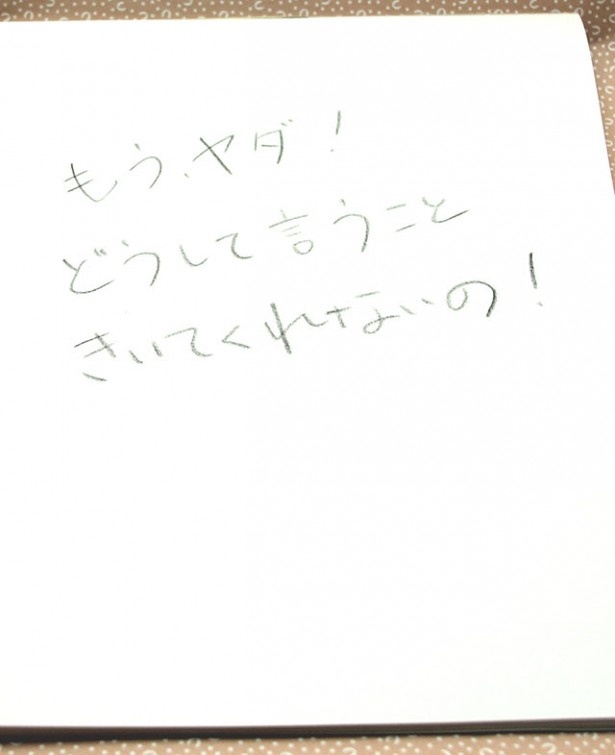 もう、ヤダ!
どうして言うこと
きいてくれないの!